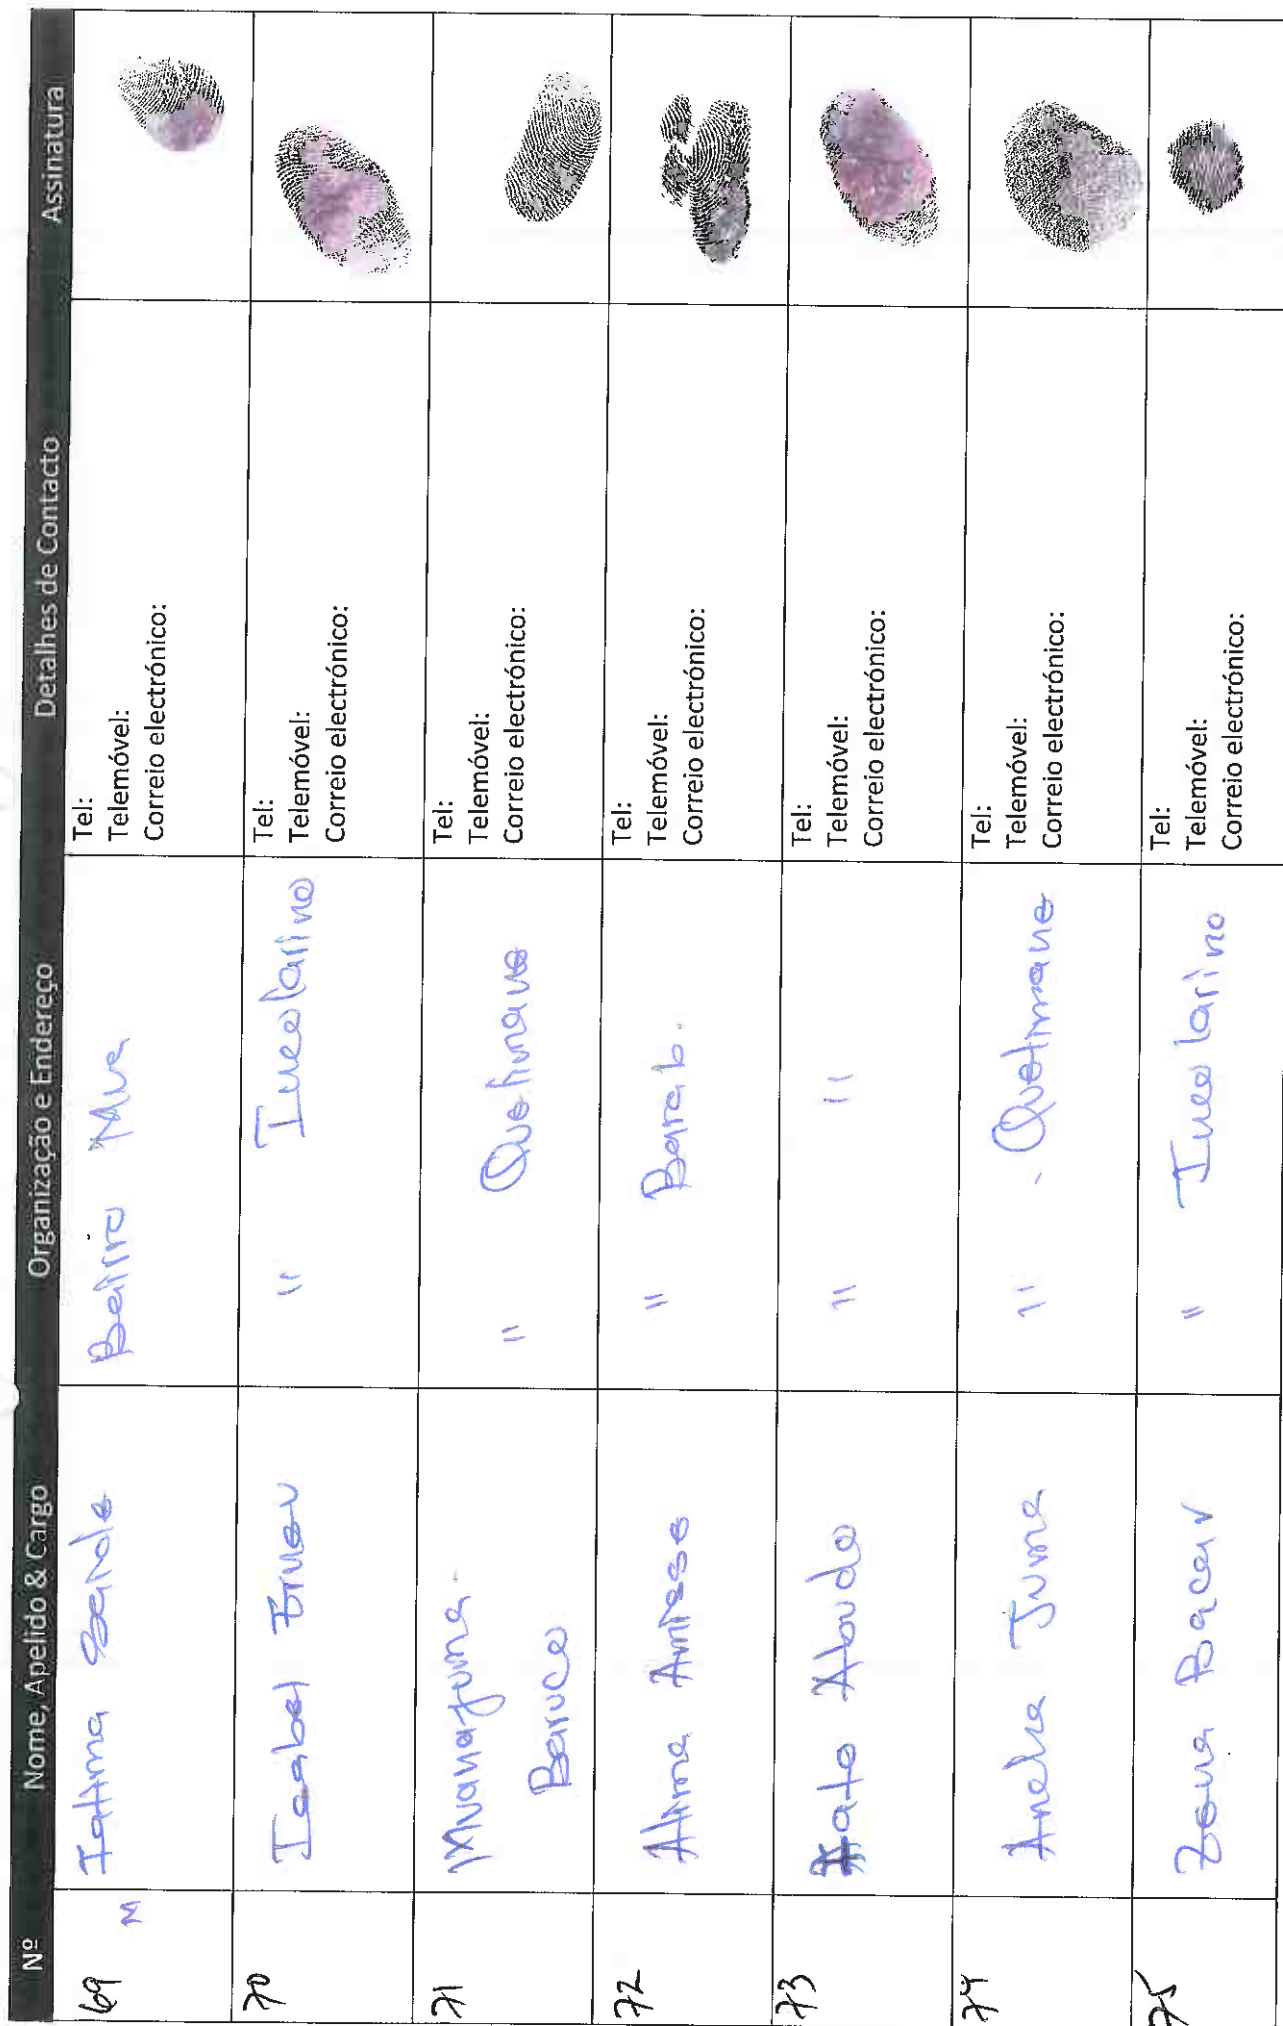 Nº Nome, Apelido & Cargo Organização e Endereço Detalhes de Contacto Assinatura
69 M Fatima Bairro Mua Tel:
Telemóvel:
Correio electrónico:
70 Isabel " Tel:
Telemóvel:
Correio electrónico:
71 Muanajuma " Quelimane Tel:
Baruco Telemóvel:
Correio electrónico:
72 Alima Amisse " Barab. Tel:
Telemóvel:
Correio electrónico:
73 Fato Aboudo " " Tel:
Telemóvel:
Correio electrónico:
74 Juma " Quelimane Tel:
Telemóvel:
Correio electrónico:
75 Zena Bacar " Tel:
Telemóvel:
Correio electrónico: